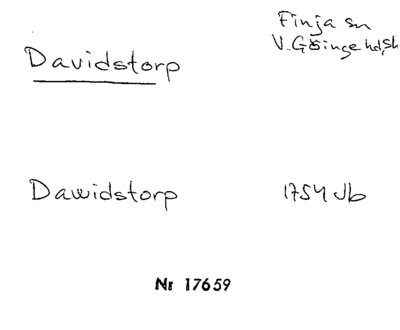 Davidstorp
Finja sn
V. Göinge hd, Sk
Dawidstorp
1754 Jb
Nr 17659